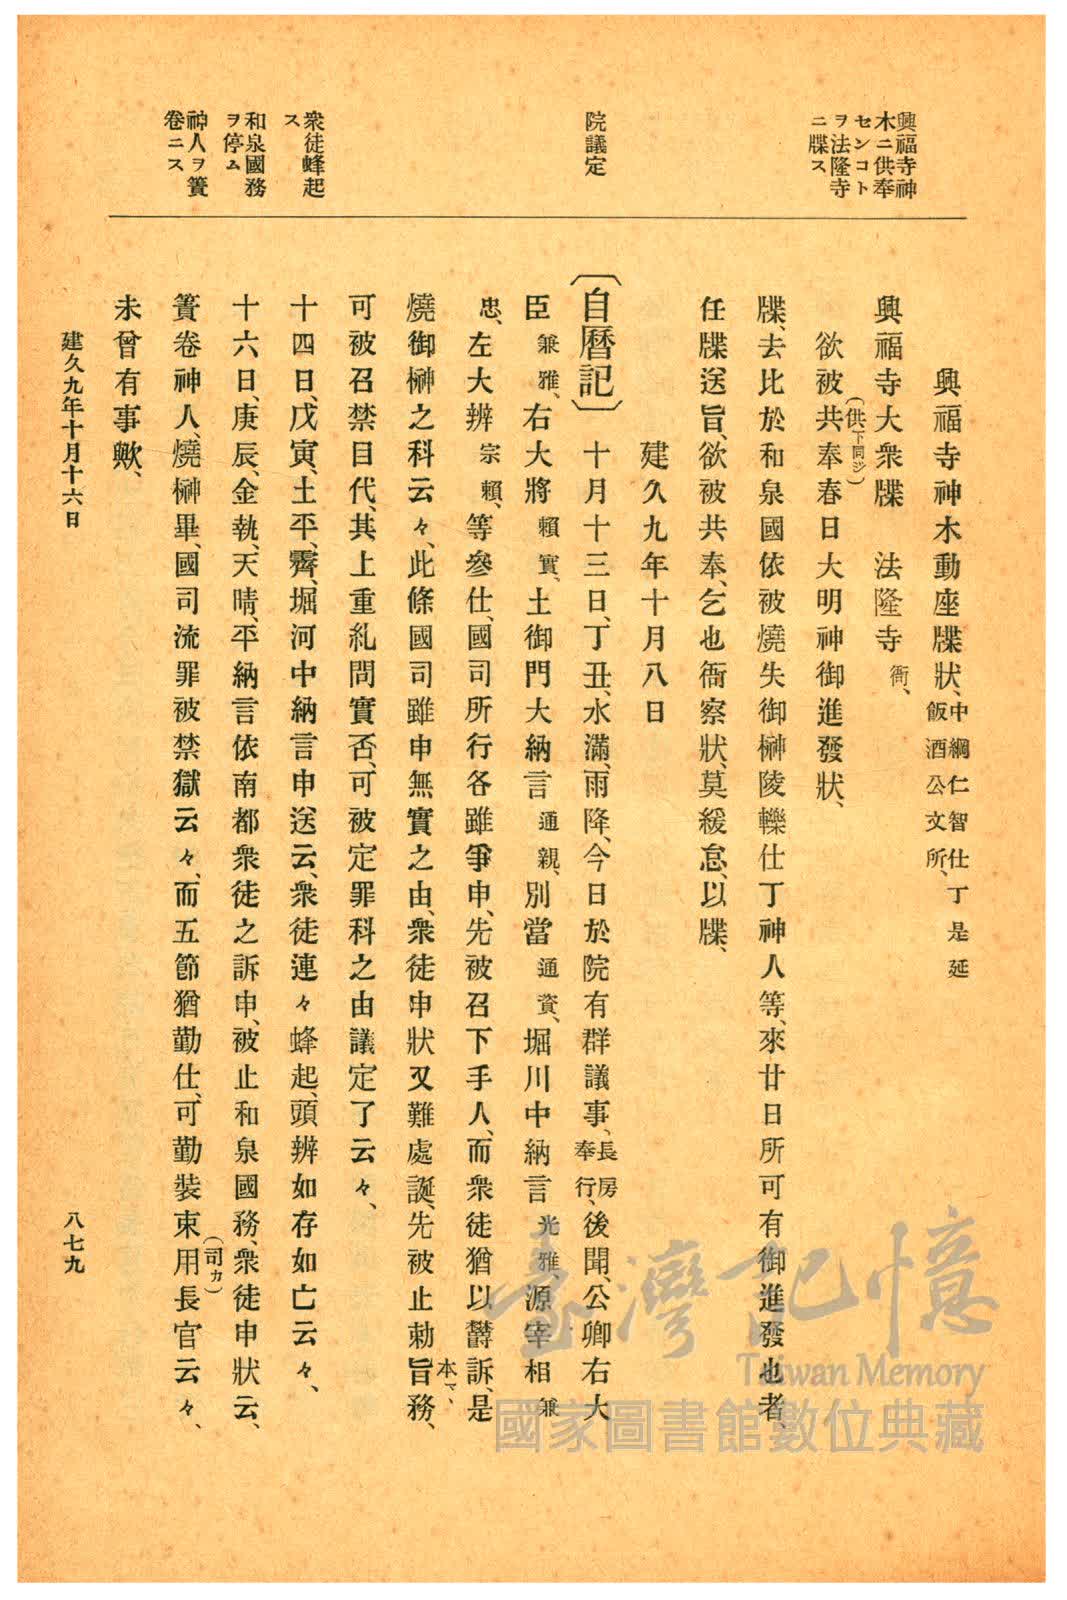 興福寺神
木ニ供奉
センコト
ヲ法隆寺
ニ牒ス
院議定
衆徒蜂起
ス
和泉國務
ヲ停ム
神人ヲ簀
卷ニス
興福寺神木動座牒狀、中綱仁智仕丁是延
飯酒公文所、
興福寺大衆牒　法隆寺衙、
欲被共(供、下同ジ)奉春日大明神御進發狀、
牒、去比於和泉國依被燒失御榊陵轢仕丁神人等、來廿日所可有御進發也者、
任牒送旨、欲被共奉、乞也衙察狀、莫緩怠、以牒、
建久九年十月八日
〔自曆記〕十月十三日、丁丑、水滿、雨降、今日於院有群議事、長房奉行、後聞、公卿右大
臣兼雅、右大將賴實、土御門大納言通親、別當通資、堀川中納言光雅、源宰相兼
忠、左大辨宗賴、等參仕、國司所行各雖爭申、先被召下手人、而衆徒猶以欝訴、是
燒御榊之科云々、此條國司雖申無實之由、衆徒申狀又難處誕、先被止勅旨(本マヽ)務、
可被召禁目代、其上重糺問實否、可被定罪科之由議定了云々、
十四日、戊寅、土平、霽、堀河中納言申送云、衆徒連々蜂起、頭辨如存如亡云々、
十六日、庚辰、金執、天晴、平納言依南都衆徒之訴申、被止和泉國務、衆徒申狀云、
簀卷神人、燒榊畢、國司流罪被禁獄云々、而五節猶勤仕、可勤裝束用(司カ)長官云々、
未曾有事歟、
建久九年十月十六日
八七九
臺灣記憶
Taiwan Memory
國家圖書館數位典藏